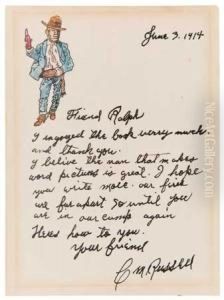 June 3. 1914
Friend Ralph
I injoyed the book verry much
and thank you.
I belive the man that makes
word pictures is great. I hope
you write more. our fires
are far apart So until you
are in our camp again
Heres how to you.
Your friend
C M Russell
NiceArtGallery.com